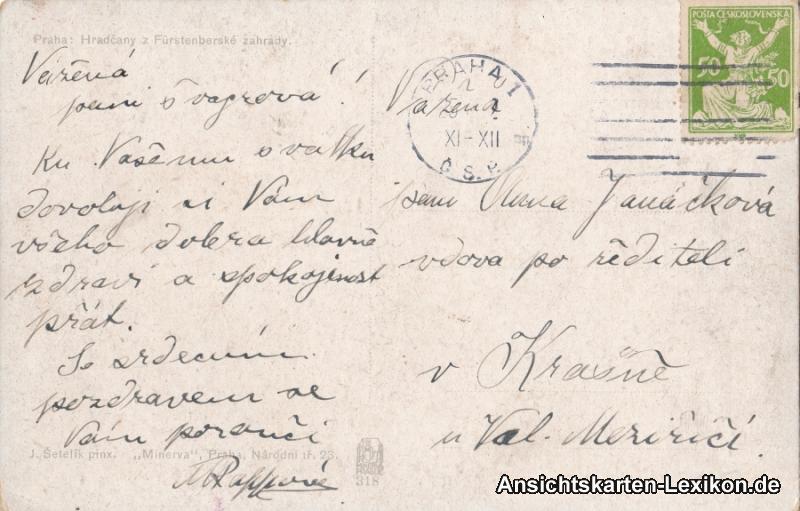 Praha: Hradčany z Fürstenberské zahrady.
Vážená
paní švagrová!
Ku Vašému svatku
dovoluji si Vám
všeho dobra hlavně
zdraví a spokojenost
přát.
Se srdečním
pozdravem se
Vám poroučí
J. Šetelík pinx. „Minerva", Praha, Národní tř. 23.
318
POŠTA ČESKOSLOVENSKÁ
50 50
PRAHA 1
XI-XII
Č.S.P.
Vážená
paní Anna Janáčková
vdova po řediteli
v Krásně
u Val. Meziříčí.
Ansichtskarten-Lexikon.de